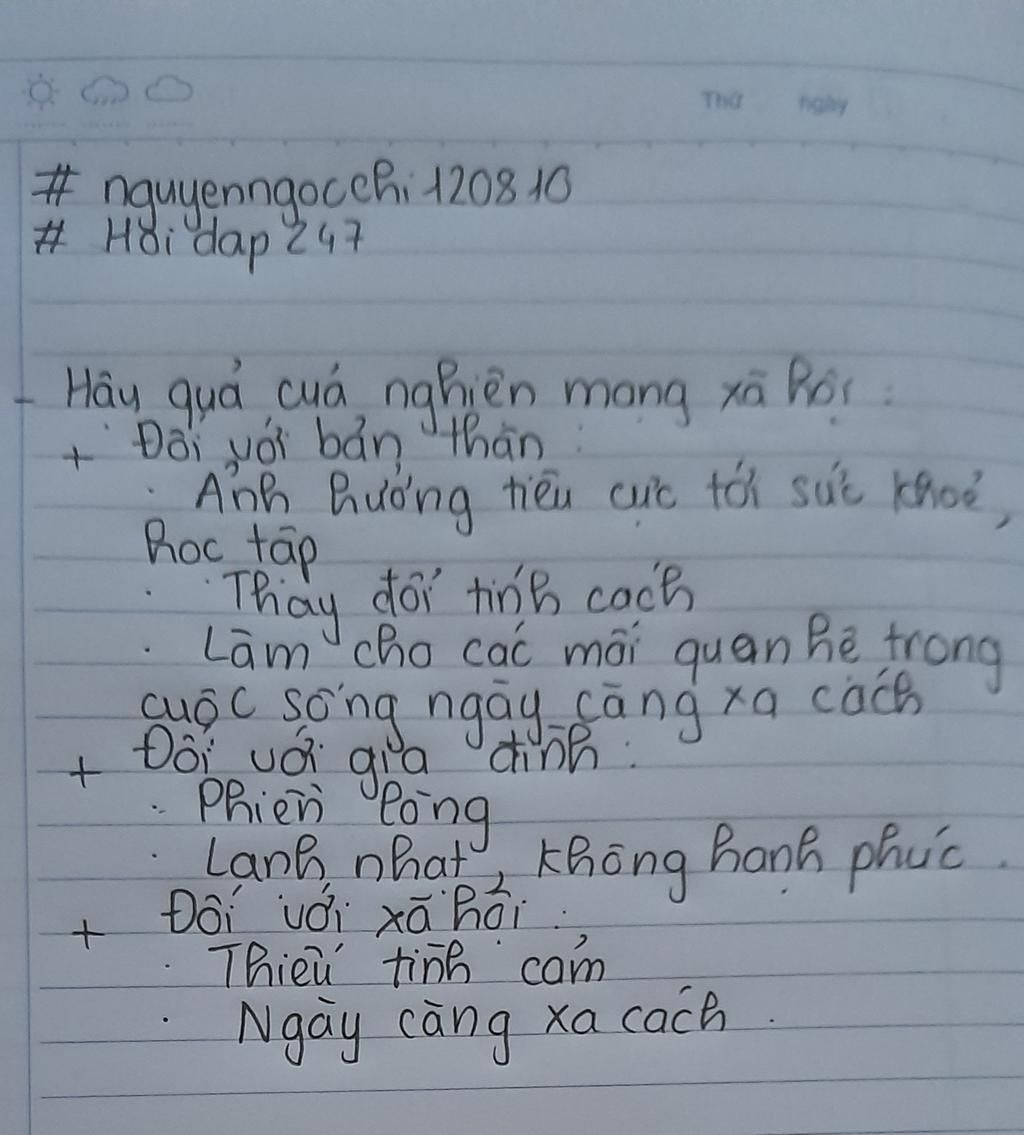 Thứ ngày
# nguyenngocchi120810
# Hỏi dap 247
- Hậu quả của nghiện mạng xã hội :
+ Đối với bản thân :
· Ảnh hưởng tiêu cực tới sức khoẻ,
học tập
· Thay đổi tính cách
· Làm cho các mối quan hệ trong
cuộc sống ngày càng xa cách
+ Đối với gia đình :
· Phiền lòng
· Lạnh nhạt, không hạnh phúc.
+ Đối với xã hội :
· Thiếu tình cảm
· Ngày càng xa cách.